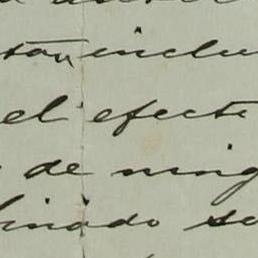 tán inclu
el efecto
de ning
inado se